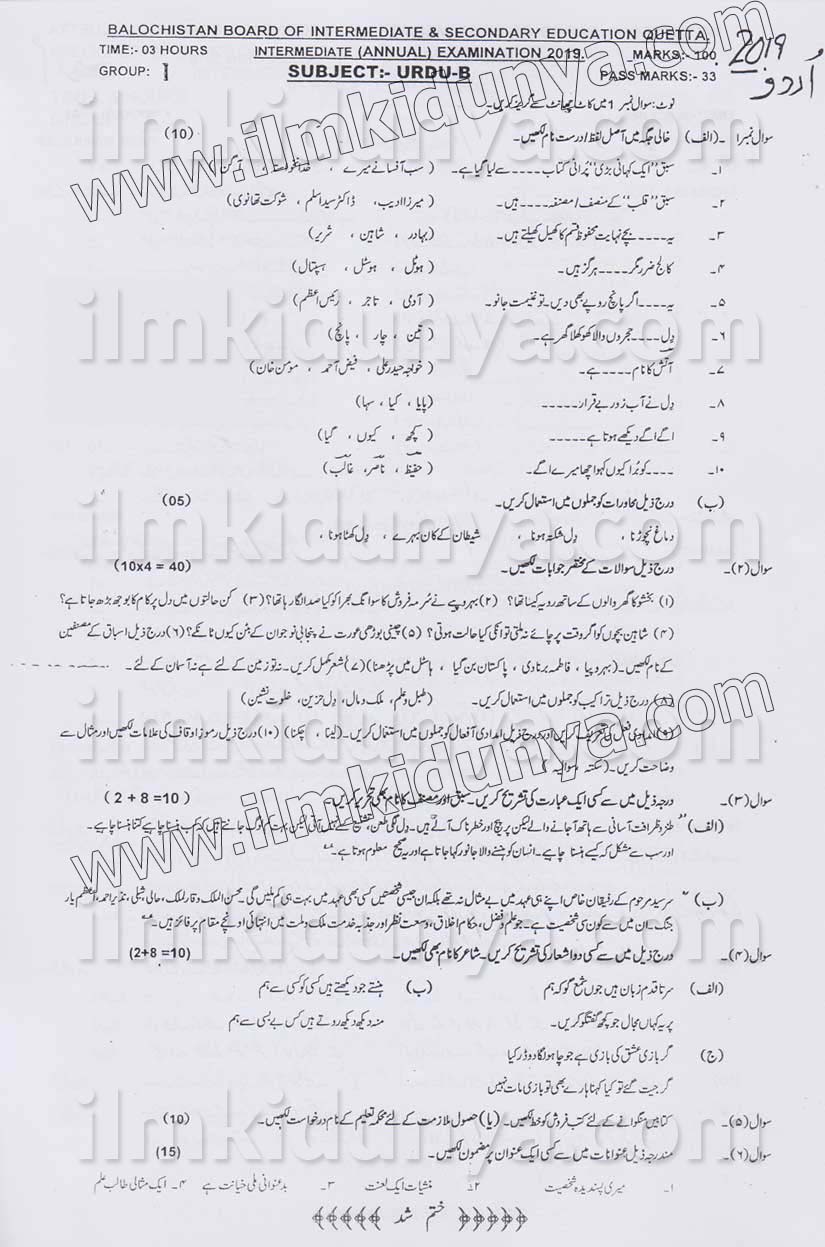 BALOCHISTAN BOARD OF INTERMEDIATE & SECONDARY EDUCATION QUETTA.
TIME:- 03 HOURS INTERMEDIATE (ANNUAL) EXAMINATION 2019. MARKS:- 100
GROUP: I SUBJECT:- URDU-B PASS MARKS:- 33
2019
اُردو
نوٹ: سوال نمبر 1 میں کاٹ چھانٹ سے گریز کریں۔
سوال نمبر۱ ۔(الف) خالی جگہ میں اصل لفظ/درست نام لکھیں۔ (10)
۱۔ سبق "ایک کہانی بڑی پُرانی" کتاب ۔۔۔۔ سے لیا گیا ہے۔ (سب افسانے میرے ، خدانخواستہ ، آنگن)
۲۔ سبق "قلب" کے منصف/مصنفہ ۔۔۔۔ ہیں۔ (میرزا ادیب، ڈاکٹر سید اسلم ، شوکت تھانوی)
۳۔ یہ ۔۔۔۔ بچے نہایت محفوظ قسم کا کھیل کھیلتے ہیں۔ (بہادر ، شاہین ، شریر)
۴۔ کالج ضرر مگر ۔۔۔۔ ہرگز ہیں۔ (ہوٹل ، ہوسٹل ، ہسپتال)
۵۔ یہ ۔۔۔۔ اگر پانچ روپے بھی دیں۔ تو غنیمت جانو۔ (آدمی ، تاجر ، رئیس اعظم)
۶۔ دِل ۔۔۔۔ حجروں والا کھوکھلا گھر ہے۔ (تین ، چار ، پانچ)
۷۔ آتش کا نام ۔۔۔۔ ہے۔ (خواجہ حیدر علی ، فیض احمد ، مؤمن خان)
۸۔ دل نے اب زور بے قرار ۔۔۔۔۔ (پایا ، کیا ، سہا)
۹۔ اگے اگے دیکھے ہوتا ہے ۔۔۔۔۔ (کچھ ، کیوں ، گیا)
۱۰۔ ۔۔۔۔ کو بُرا کیوں کہو اچھا میرے اگے۔ (حفیظ ، ناصر، غالب)
(ب) درج ذیل محاورات کو جملوں میں استعمال کریں۔ (05)
دماغ نچوڑنا ، دل شکتہ ہونا ، شیطان کے کان بہرے ، دِل کھٹا ہونا ،
سوال (۲)۔ درج ذیل سوالات کے مختصر جوابات لکھیں۔ (10x4 = 40)
(۱) بخشو کا گھر والوں کے ساتھ رویہ کیسا تھا؟ (۲) بہروپیے نے سُرمہ فروش کا سوانگ بھرا کو کیا صدا لگا رہا تھا؟ (۳) کن حالتوں میں دل پر کام کا بوجھ بڑھ جاتا ہے؟
(۴) شاہین بچوں کو اگر وقت پر چائے نہ ملتی تو انکی کیا حالت ہوتی؟ (۵) چینی بوڑھی عورت نے پنجابی نوجوان کے بٹن کیوں ٹانکے؟ (۶) درج ذیل اسباق کے مصنفین
کے نام لکھیں۔ (بہروپیا ، فاطمہ برناوی ، پاکستان بن گیا ، ہاسٹل میں پڑھنا) (۷) شعر مکمل کریں۔ نہ تو زمین کے لئے ہے نہ آسمان کے لئے۔
(۸) درج ذیل تراکیب کو جملوں میں استعمال کریں۔ (طبل و علم، ملک و مال، دل حزین، خلوت نشین)
(۹) امدادی فعل کی تعریف کریں اور درج ذیل امدادی افعال کو جملوں میں استعمال کریں۔ (لینا ، چکنا) (۱۰) درج ذیل رموز اوقاف کی علامات لکھیں اور مثال سے
وضاحت کریں۔ (سکتہ ، سوالیہ)
سوال (۳)۔ درجہ ذیل میں سے کسی ایک عبارت کی تشریح کریں۔ سبق اور مصنف کا نام بھی تحریر کریں۔ (2 + 8 =10)
(الف) "طنز و ظرافت آسانی سے ہاتھ آجانے والے لیکن پرپیچ اور خطرناک آلے ہیں۔ دل لگی، طعن، تشنیع کسے نہیں آتی لیکن بہت کم لوگ جانتے ہیں کہ کب ہنسنا چاہیے کتنا ہنسنا چاہیے۔
اور سب سے مشکل کہ کیسے ہنسنا چاہیے۔ انسان کو ہنسنے والا جانور کہا جاتا ہے اور یہ صحیح معلوم ہوتا ہے۔"
(ب) "سرسید مرحوم کے رفیقان خاص اپنے ہی عہد میں بے مثال نہ تھے بلکہ ان جیسی شخصتیں کسی بھی عہد میں بہت ہی کم ملیں گی۔ محسن الملک وقار الملک، حالی، شبلی، نذیر احمد، اعظم یار
جنگ۔ ان میں سے کون سی شخصیت ہے۔ جو علم و فضل، حکام اخلاق، وسعت نظر اور جذبہ خدمت ملک و ملت میں انتہائی اونچے مقام پر فائز ہیں۔"
سوال (۴)۔ درج ذیل میں سے کسی دو اشعار کی تشریح کریں۔ شاعر کا نام بھی لکھیں۔ (2+8 =10)
(الف) سرتا قدم زبان ہیں جوں شمع گو کہ ہم (ب) ہنستے جو دیکھتے ہیں کسی کو کسی سے ہم
پر یہ کہاں مجال جو کچھ گفتگو کریں۔ منہ دیکھ دیکھ روتے ہیں کس بے بسی سے ہم
(ج) گر بازی عشق کی بازی ہے جو چاہو لگا دو ڈر کیا
گر جیت گئے تو کیا کہنا ہارے بھی تو بازی مات نہیں
سوال (۵)۔ کتابیں منگوانے کے لئے کتب فروش کو خط لکھیں۔ (یا) حصول ملازمت کے لئے محکمہ تعلیم کے نام درخواست لکھیں۔ (10)
سوال (۶)۔ مندرجہ ذیل عنوانات میں سے کسی ایک عنوان پر مضمون لکھیں۔ (15)
۱۔ میری پسندیدہ شخصیت ۲۔ منشیات ایک لعنت ۳۔ بدعنوانی ملی خیانت ہے ۴۔ ایک مثالی طالب علم
ختم شد
www.ilmkidunya.com
ilmkidunya.com
ilmkidunya.com
ilmkidunya.com
www.ilmkidunya.com
ilmkidunya.com
ilmkidunya.com
ilmkidunya.com